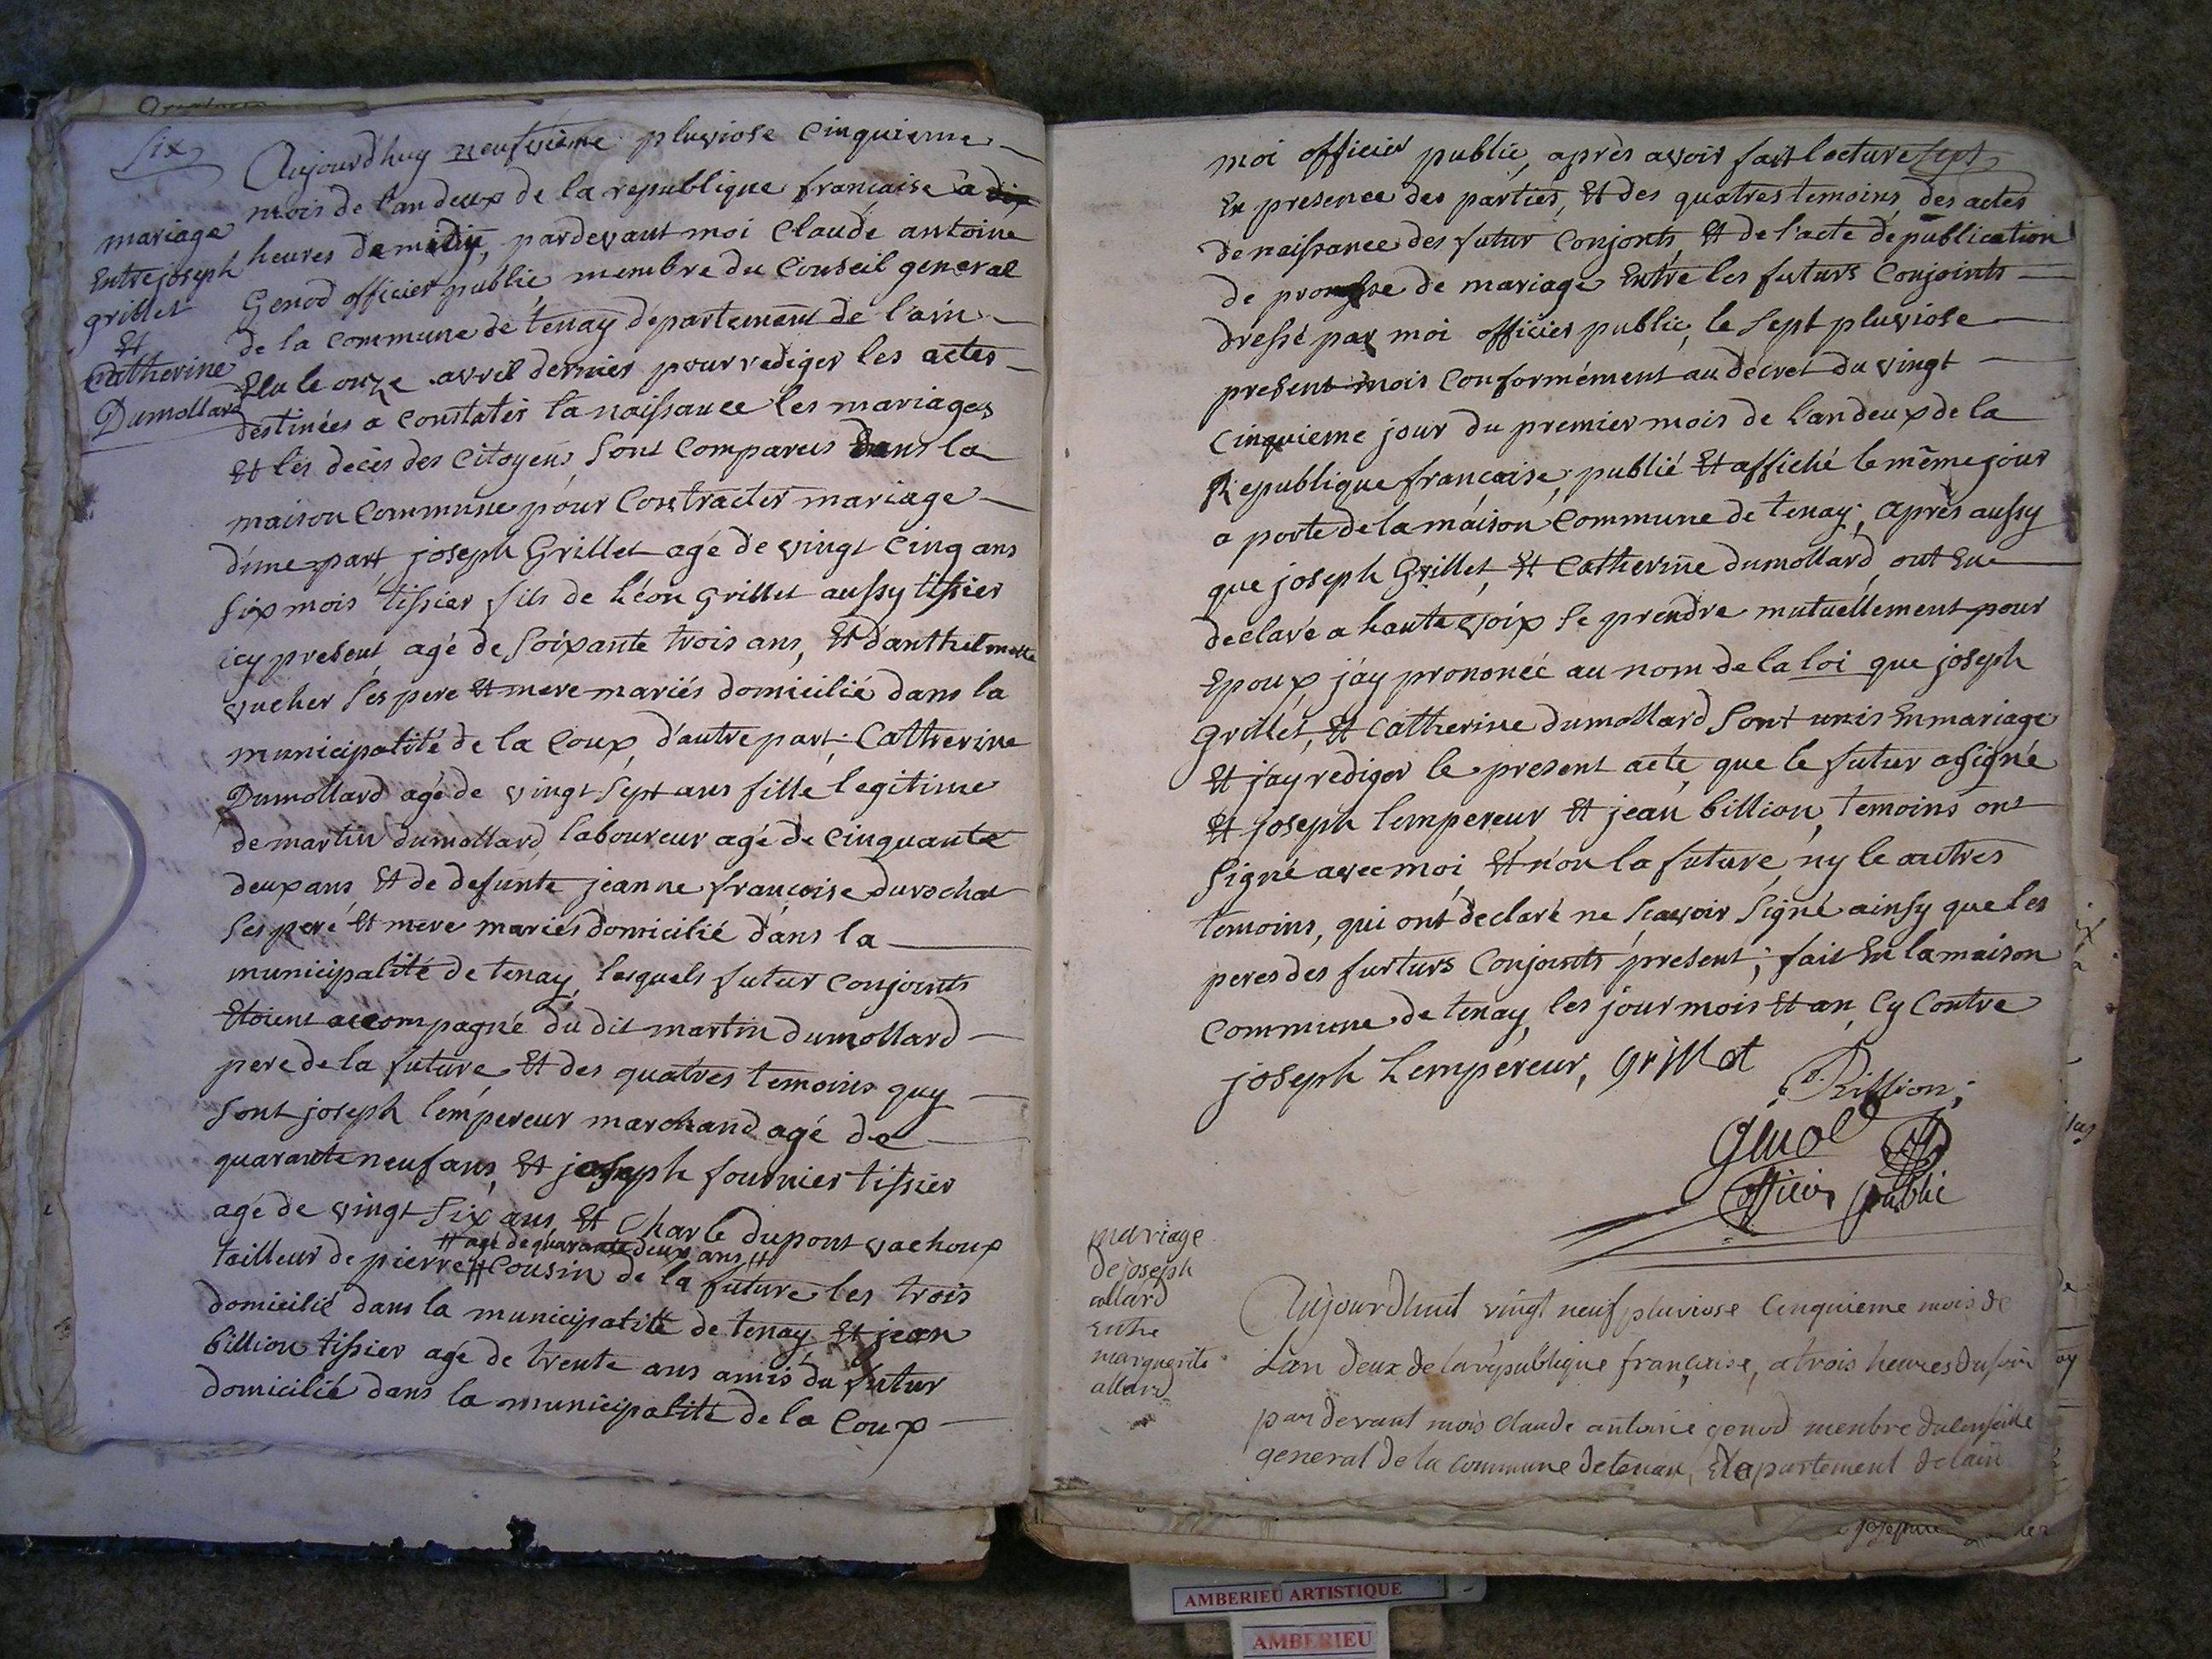 Six
Aujourd'huy neufvième pluviose Cinquieme
mois de l'an deux de la republique francaise a dix
heures de midy, pardevant moi Claude antoine
Genod officier public membre du Conseil general
de la commune de tenay departement de l'ain
Elu le onze avril dernier pour rediger les actes
destinées a constater la naissance les mariages
Et les decès des Citoyens Sont Comparus Dans la
maison Commune pour Contracter mariage
d'une part joseph Grillet agé de vingt Cinq ans
Six mois tissier fils de Léon grillet aussy tissier
icy present agé de Soixante trois ans, Et d'anthelmette
vucher Ses pere Et mere mariés domicilié dans la
municipalité de la Coux, d'autre part, Catherine
Dumollard agé de vingt Sept ans fille legitime
de martin dumollard, laboureur agé de Cinquante
deux ans, Et de defunte jeanne francoise durochat
Ses peré Et mere mariés domicilié dans la
municipalité de tenay, lesquels futur conjoints
Etoient accompagné du dit martin dumollard
pere de la future Et des quatres temoins quy
Sont joseph lempereur marchand agé de
quarante neuf ans, Et joseph fournier tissier
agé de vingt Six ans Et Charle dupont vachoux
# agé de quarante deux ans #
tailleur de pierre # Cousin de la future les trois
domicilié dans la municipalité de tenay Et jean
billion tissier agé de trente ans amis du futur
domicilié dans la municipalité de la Coux
mariage
Entre joseph
grillet
Et
Catherine
Dumollard
moi officier public, après avoir fait lecture Sept
En presence des parties, Et des quatres temoins, des actes
de naissance des futur Conjonts, Et de l'acte de publication
de promesse de mariage Entre les futurs Conjoints
dressé par moi officier public, le Sept pluviose
present mois Conformément au décret du vingt
Cinquieme jour du premier mois de l'an deux de la
Republique francaise, publié Et affiché le même jour
a porte de la maison Commune de tenay, après aussy
que joseph Grillet, Et Catherine dumollard, ont Eu
declaré a haute voix Se prendre mutuellement pour
Epoux, j'ay prononcé au nom de la loi que joseph
grillet, Et Catherine dumollard Sont unis En mariage
Et j'ay rediger le present acte, que le futur a Signé
Et joseph lempereur Et jean billion, temoins ont
Signé avec moi Et non la future, ny le autres
temoins, qui ont declaré ne Scavoir Signé ainsy que les
peres des furturs Conjoints present; fait En la maison
Commune de tenay, les jour mois Et an, Cy Contre
joseph Lempereur, grillet
Billion;
Genod
officier public
mariage
de joseph
collard
entre
marguerite
allard
Aujourdhuit vingt neuf pluviose Cinquieme mois de
Lan deux de la republique française, a trois heures du soir
par devant mois Claude antoine genod menbre du Conseille
general de la Commune de tenay, departement de lain
AMBERIEU ARTISTIQUE
AMBERIEU